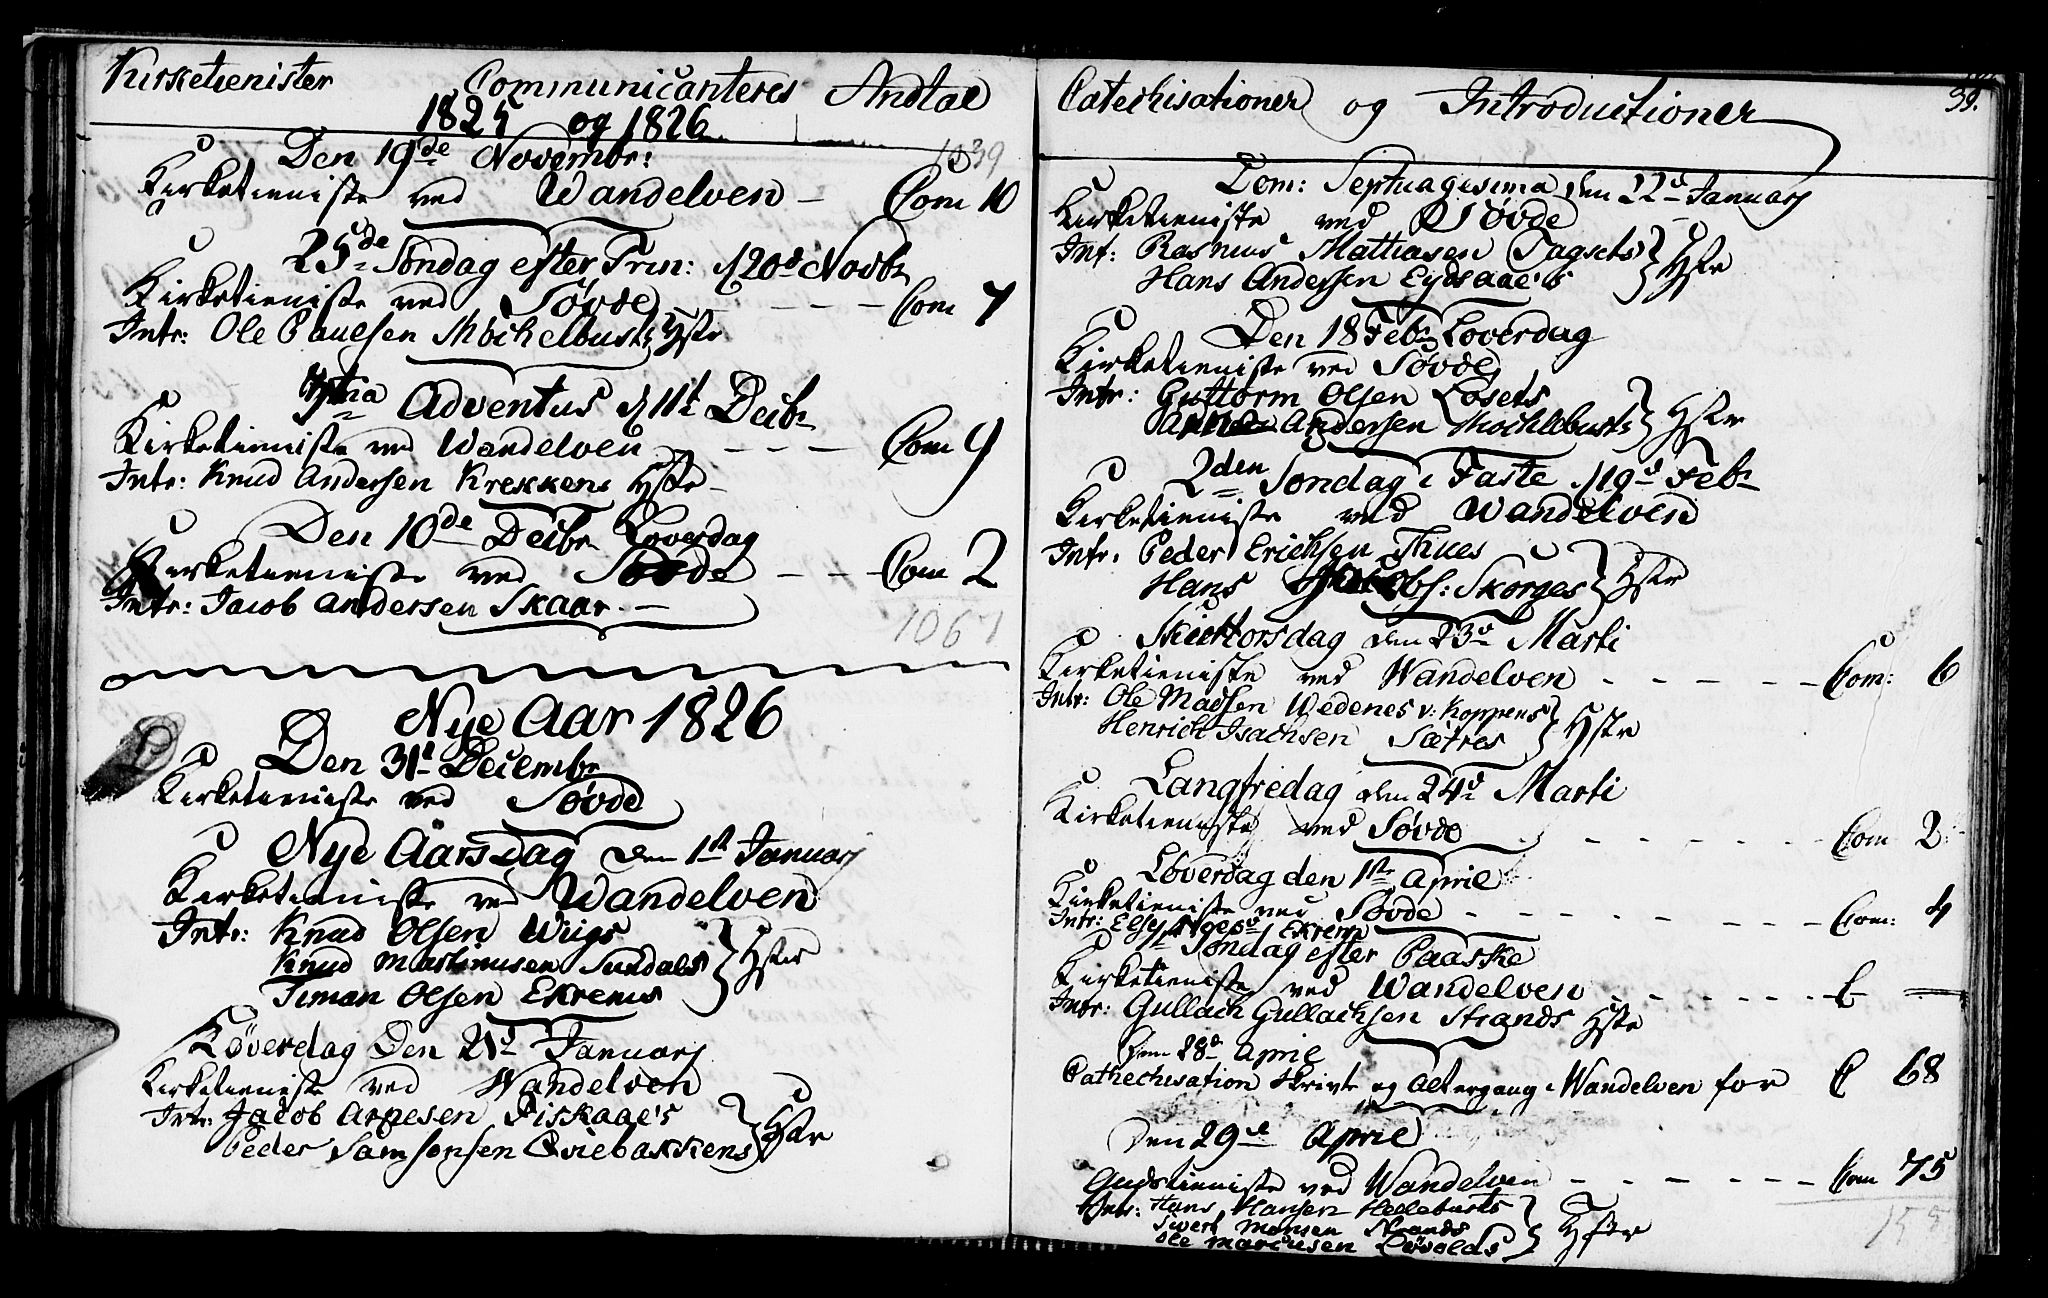 Kirketienister Communicanteres Andtal
1825 og 1826
1039
Den 19de Novembr:
Kirketieniste ved Wandelven – Com 10
25de Søndag efter Trin: d 20d Novbr
Kirketieniste ved Søvde – – – – Com 7
Intr: Ole Paulsen Mochelbusts Hstr
3tia Adventus d 11t Decbr
Kirketieniste ved Wandelven – – – Com 9
Intr: Knud Andersen Krekkens Hstr –
Den 10de Decbr Løverdag
Kirketieniste ved Søvde – – – Com 2
Intr: Jacob Andersen Skaar. –
1067
Nye Aar 1826
Den 31t Decembr
Kirketieniste ved Søvde
Nye Aars Dag den 1ste Januarj
Kirketieniste ved Wandelven
Intr: Knud Olsen Wiigs
Knud Martinusen Sundals
Timan Olsen Ekrems
Hstr
Løverdag Den 21d Januarj
Kirketieniste ved Wandelven
Intr: Jacob Arnesen Fiskaae's
Peder Samsonsen Qviebakkens
Hstr
Catechisationer og Introductioner
39.
Dom: Septuagesima den 22d Januarj
Kirketieniste ved Søvde
Int: Rasmus Mathiasen Tagsets
Hans Andersen Eydsaae's
Hstr
Den 18 Febr Løverdag
Kirketieniste ved Søvde
Intr: Guttorm Olsen Løsets
Andersen Mochlebusts
Hstr
2den Søndag i Faste d 19d Febr
Kirketieniste ved Wandelven
Intr. Peder Erichsen Thues
Hans Jacobs: Skorges
Hstr
Skiertorsdag den 23d Marti
Kirketieniste ved Wandelven – – – – – Com: 6
Intr: Ole Madsen Wedenes v: Koppens
Henrich Isachsen Sætres
Hstr
Langfredag den 24d Marti
Kirketieniste ved Søvde – – – – – Com 2
Løverdag den 1ste April
Kirketieniste ved Søvde – – – – – Com: 4
Intr: Ekrem
1ste Søndag efter Paaske
Kirketieniste ved Wandelven – – – – – C –
Intr: Gullach Gullachsen Strands Hstr
Den 28d April
Cathechisation Skrivte og Altergang i Wandelven for C 68
Den 29de April
Gudstieniste ved Wandelven – – – – – Com 75
Intr: Hans Hansen Hellebusts
Sivert Monsen Strands
Ole Marcusen Løvolds
Hstr